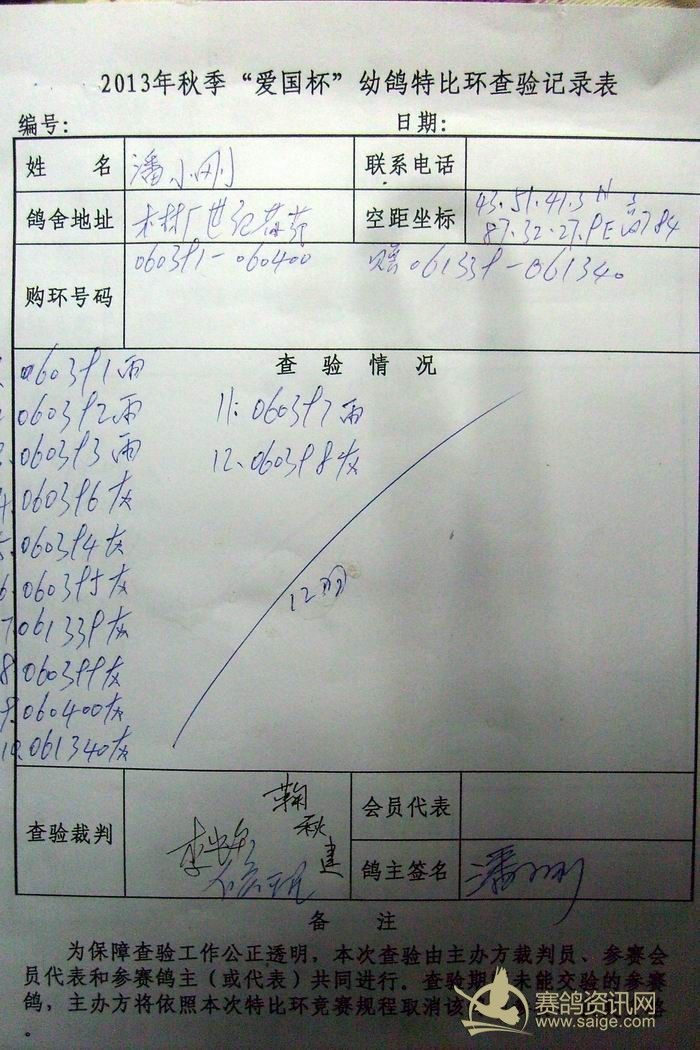 2013年秋季“爱国杯”幼鸽特比环查验记录表
编号: 日期:
姓 名 潘小刚 联系电话
鸽舍地址 木材厂世纪 空距坐标 43.51.41.3 N
87.32.27.9E 高784
购环号码 060391-060400 赠061339-061340
查验情况
060391雨
060392雨 11:060397雨
060393雨 12.060398灰
4.060396灰
5.060394灰
6.060395灰
7.061339灰
8.060399灰
9.060400灰
10.061340灰
12羽
查验裁判 鞠秋建 会员代表
鸽主签名 潘小刚
备 注
为保障查验工作公正透明，本次查验由主办方裁判员、参赛会
员代表和参赛鸽主（或代表）共同进行。查验期 未能交验的参赛
鸽，主办方将依照本次特比环竞赛规程取消该
。
赛鸽资讯网
www.saige.com